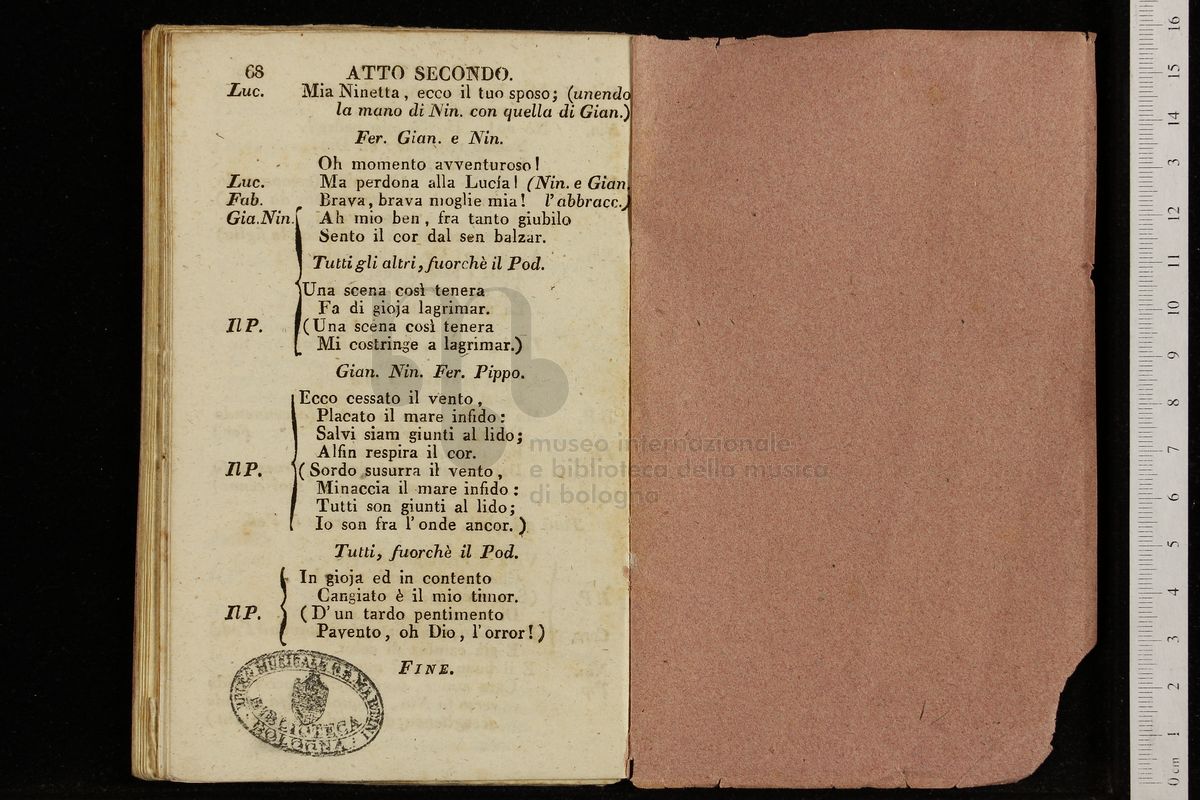 68 ATTO SECONDO.
Luc. Mia Ninetta, ecco il tuo sposo; (unendo
la mano di Nin. con quella di Gian.)
Fer. Gian. e Nin.
Oh momento avventuroso!
Luc. Ma perdona alla Lucía! (Nin. e Gian.
Fab. Brava, brava moglie mia! l'abbracc.)
Gia.Nin. Ah mio ben, fra tanto giubilo
Sento il cor dal sen balzar.
Tutti gli altri, fuorchè il Pod.
Una scena così tenera
Fa di gioja lagrimar.
Il P. (Una scena così tenera
Mi costringe a lagrimar.)
Gian. Nin. Fer. Pippo.
Ecco cessato il vento,
Placato il mare infido:
Salvi siam giunti al lido;
Alfin respira il cor.
Il P. (Sordo susurra il vento,
Minaccia il mare infido:
Tutti son giunti al lido;
Io son fra l'onde ancor.)
Tutti, fuorchè il Pod.
In gioja ed in contento
Cangiato è il mio timor.
Il P. (D'un tardo pentimento
Pavento, oh Dio, l'orror!)
FINE.
LICEO MUSICALE G.B. MARTINI
BIBLIOTECA
BOLOGNA
museo internazionale
e biblioteca della musica
di bologna
0 cm 1 2 3 4 5 6 7 8 9 10 11 12 3 14 15 16